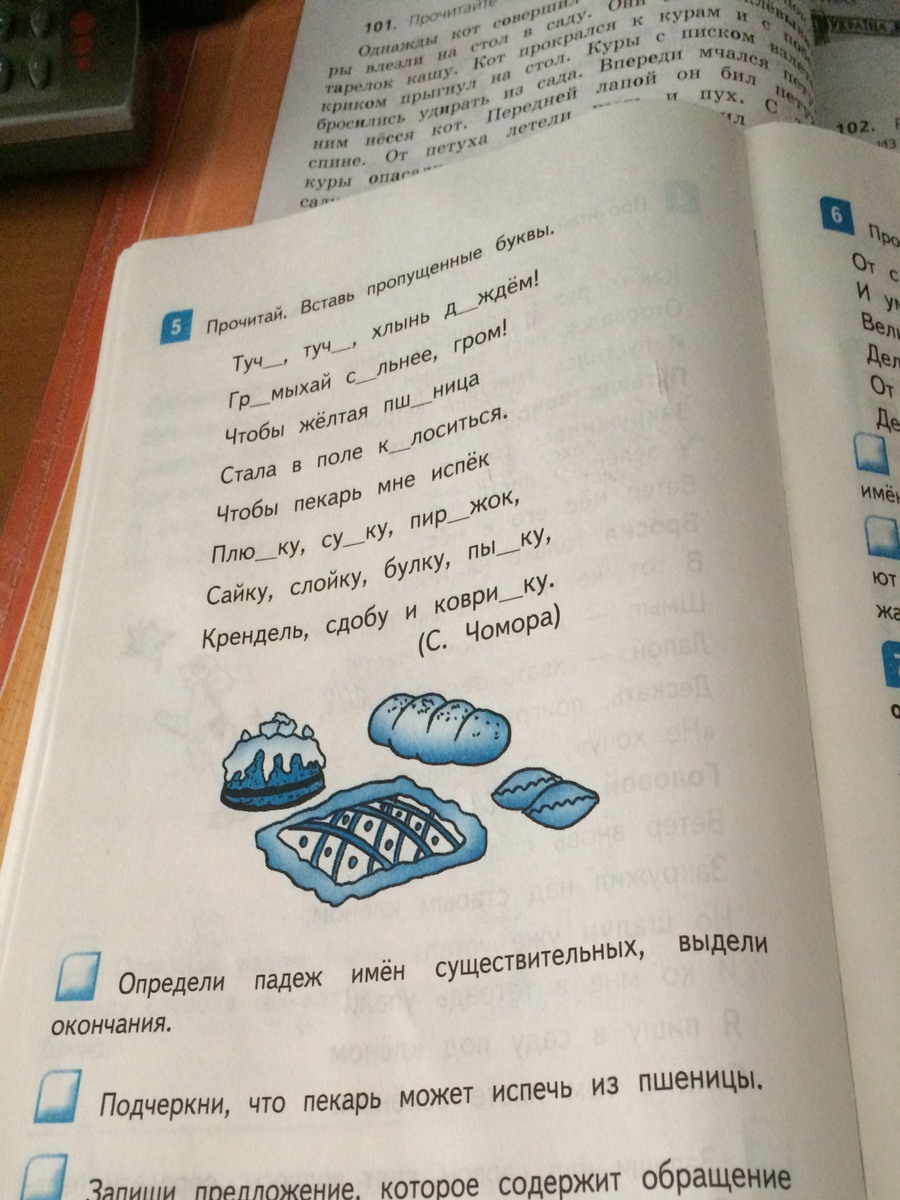 101. Прочитайте
Однажды кот совершил
ры влезли на стол в саду. Они
тарелок кашу. Кот прокрался к курам и с
криком прыгнул на стол. Куры с писком
бросились удирать из сада. Впереди мчался
ним нёсся кот. Передней лапой он бил
спине. От петуха летели и пух. С
куры
УКРАЇНА
102.
из
5 Прочитай. Вставь пропущенные буквы.
Туч__, туч__, хлынь д__ждём!
Гр__мыхай с__льнее, гром!
Чтобы жёлтая пш__ница
Стала в поле к__лоситься.
Чтобы пекарь мне испёк
Плю__ку, су__ку, пир__жок,
Сайку, слойку, булку, пы__ку,
Крендель, сдобу и коври__ку.
(С. Чомора)
Определи падеж имён существительных, выдели
окончания.
Подчеркни, что пекарь может испечь из пшеницы.
Запиши предложение, которое содержит обращение
6 Про
От с
И ум
Вели
Дел
От
Де
имён
ют
жа
7